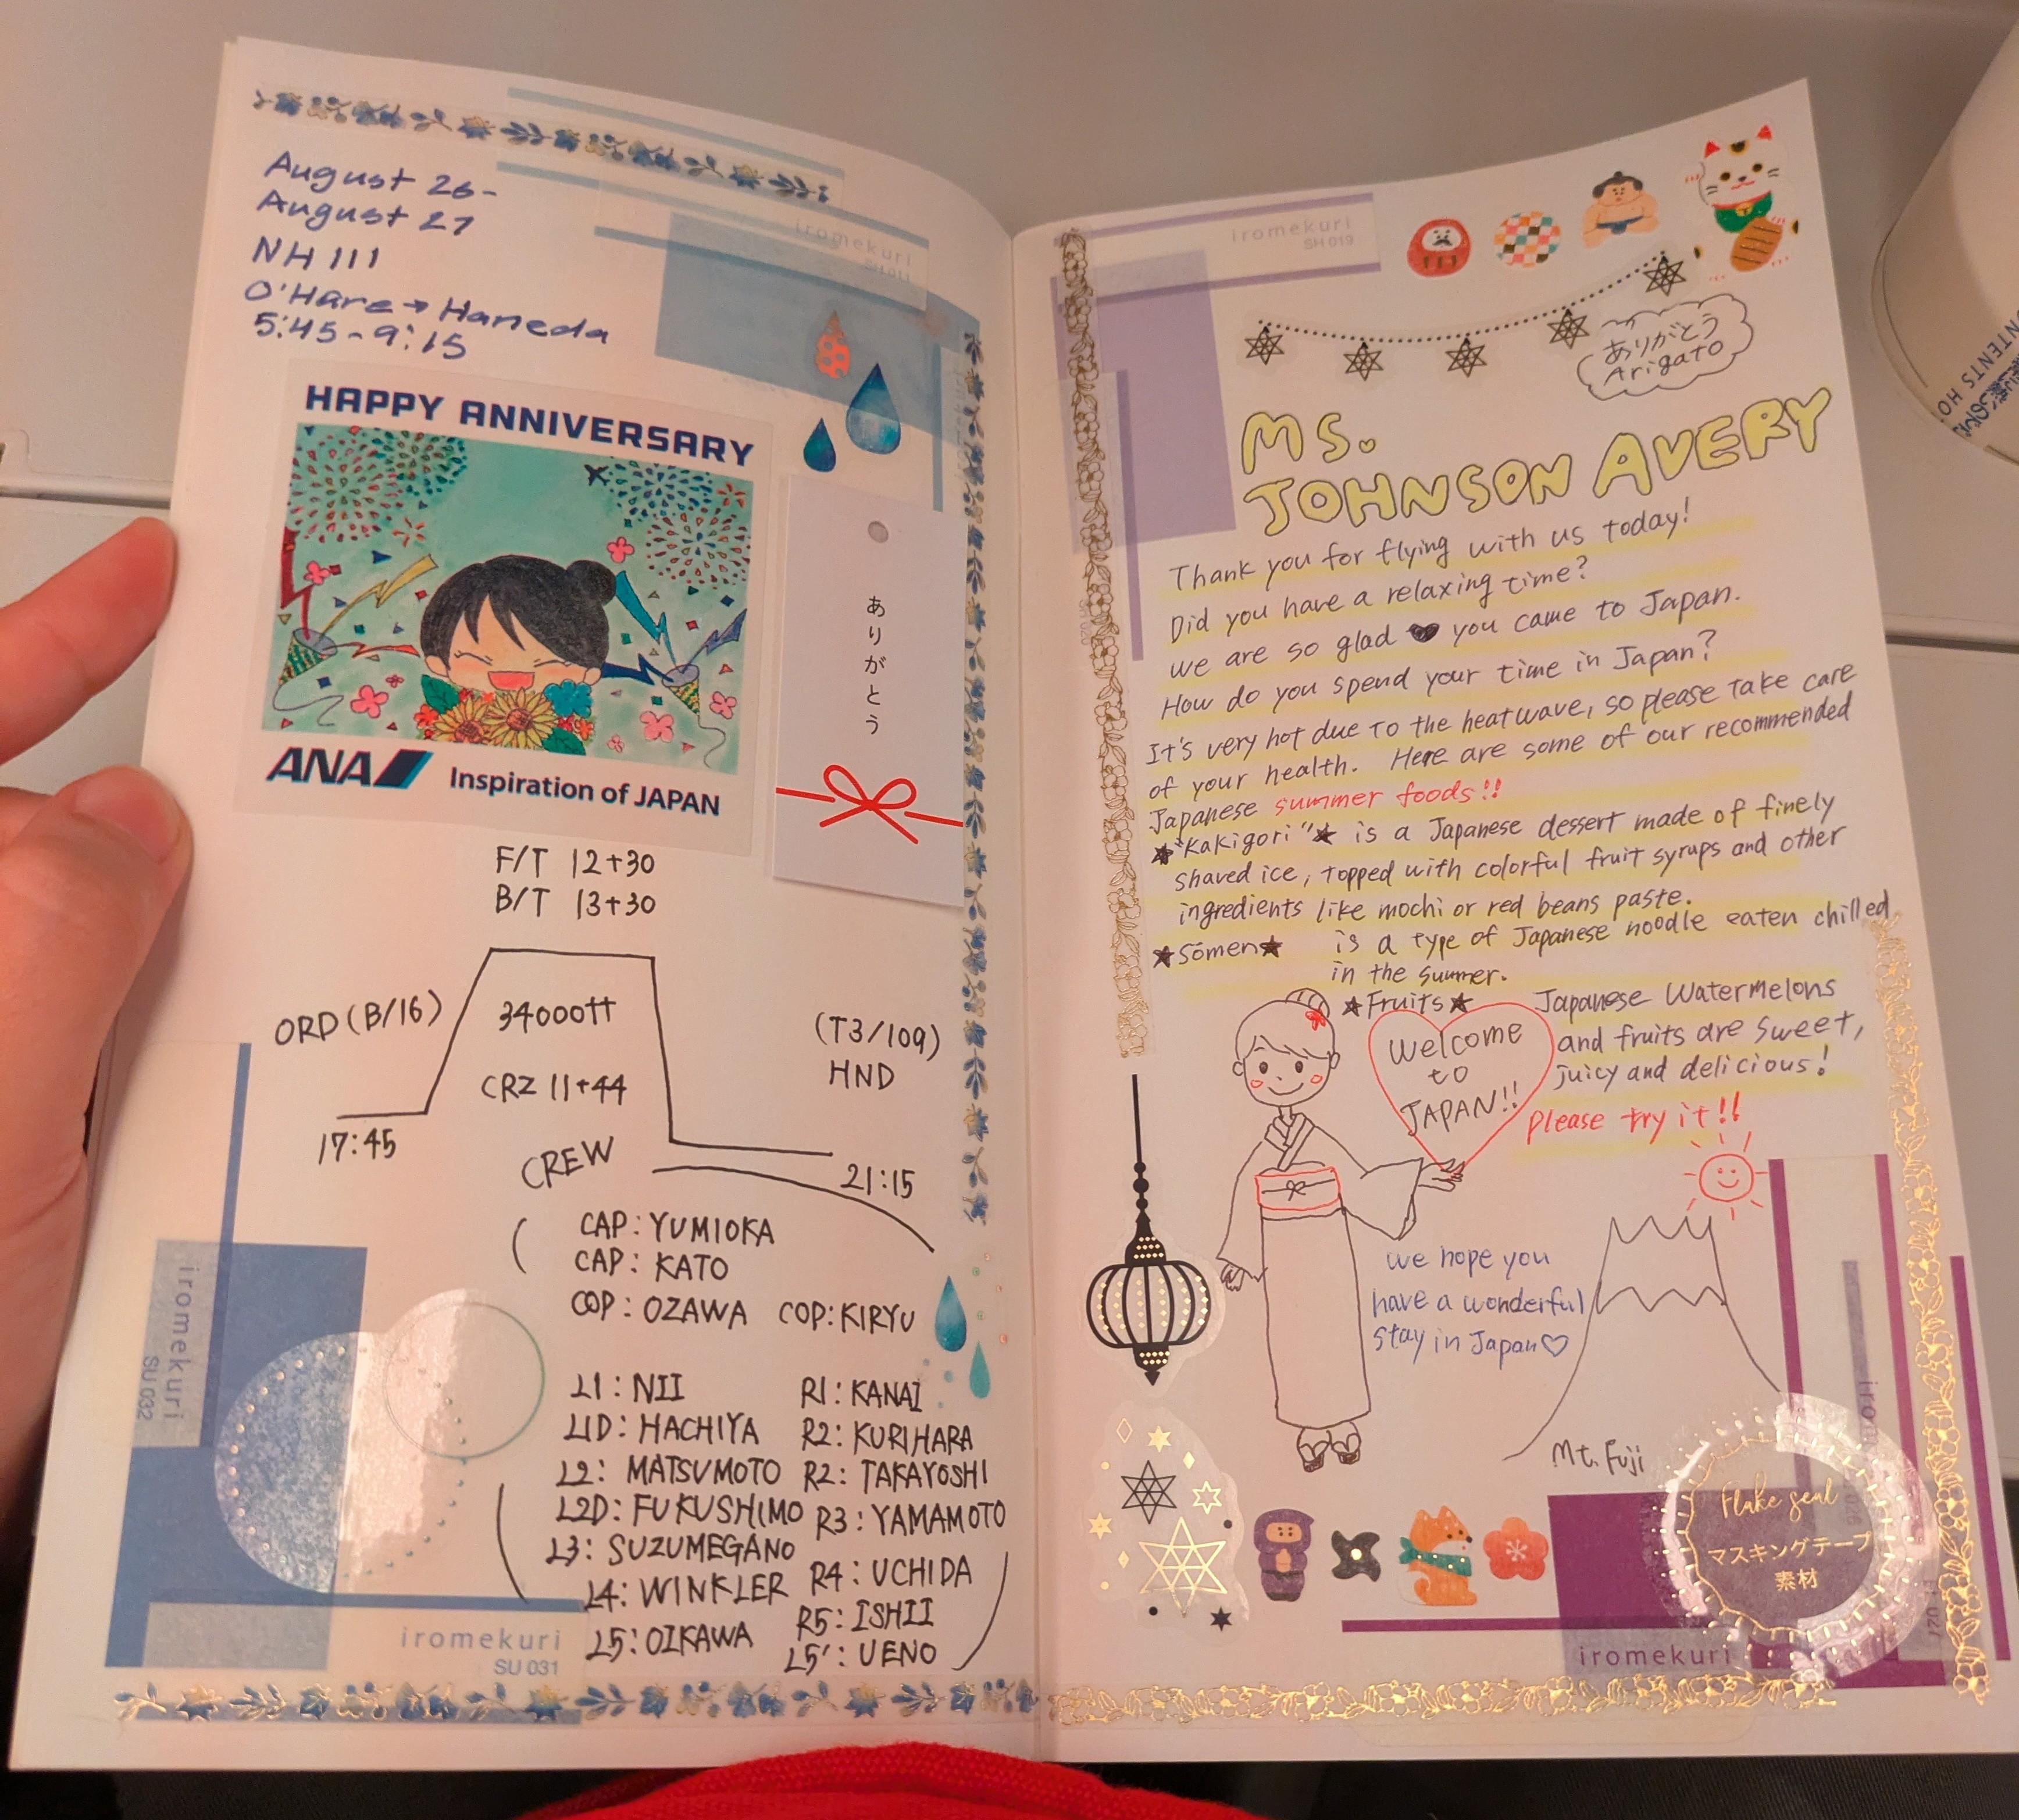 August 26-
August 27
NH 111
O'Hare → Haneda
5:45 - 9:15
iromekuri
SH 011
HAPPY ANNIVERSARY
ANA Inspiration of JAPAN
ありがとう
F/T 12+30
B/T 13+30
ORD (B/16)
34000ft
CRZ 11+44
(T3/109)
HND
17:45
21:15
CREW
CAP: YUMIOKA
CAP: KATO
COP: OZAWA COP: KIRYU
L1: NII R1: KANAI
L1D: HACHIYA R2: KURIHARA
L2: MATSUMOTO R2: TAKAYOSHI
L2D: FUKUSHIMO R3: YAMAMOTO
L3: SUZUMEGANO
L4: WINKLER R4: UCHIDA
L5: OIKAWA R5: ISHII
L5': UENO
iromekuri
SU 032
iromekuri
SU 031
iromekuri
SH 019
ありがとう
Arigato
MS.
JOHNSON AVERY
Thank you for flying with us today!
Did you have a relaxing time?
We are so glad ♥ you came to Japan.
How do you spend your time in Japan?
It's very hot due to the heatwave, so please take care
of your health. Here are some of our recommended
Japanese summer foods!!
★"Kakigori"★ is a Japanese dessert made of finely
shaved ice, topped with colorful fruit syrups and other
ingredients like mochi or red beans paste.
★Sōmen★ is a type of Japanese noodle eaten chilled
in the summer.
★Fruits★ Japanese Watermelons
and fruits are sweet,
juicy and delicious!
Please try it!!
Welcome
to
JAPAN!!
We hope you
have a wonderful
stay in Japan♡
Mt. Fuji
Flake seal
マスキングテープ
素材
iromekuri